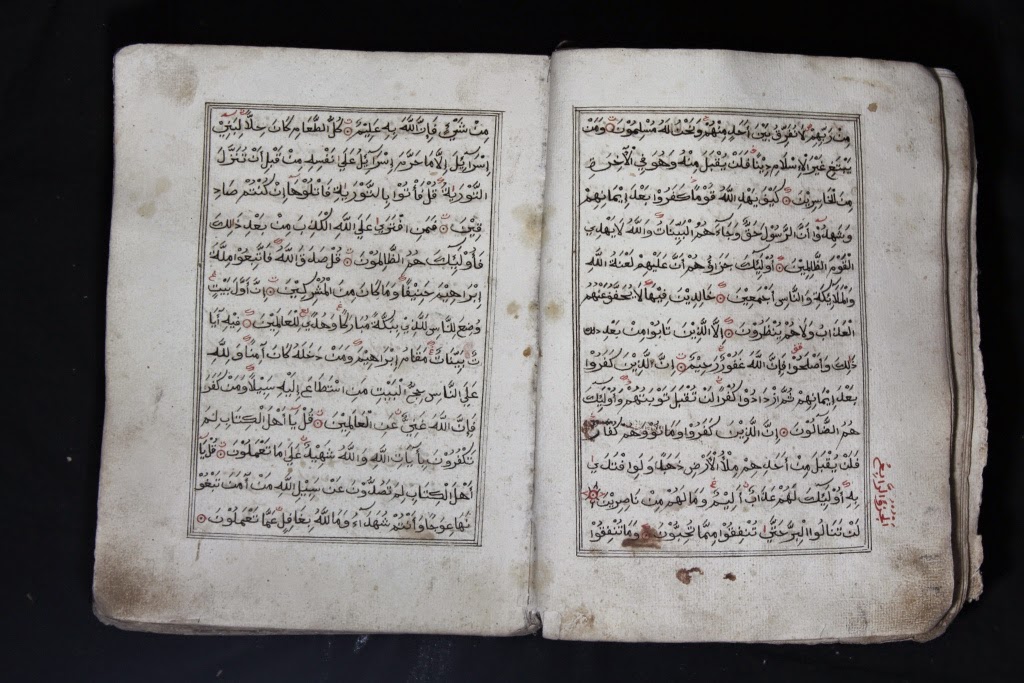 مِنْ رَبِّهِمْ لَا نُفَرِّقُ بَيْنَ أَحَدٍ مِنْهُمْ وَنَحْنُ لَهُ مُسْلِمُونَ وَمَنْ
يَبْتَغِ غَيْرَ الْإِسْلَامِ دِينًا فَلَنْ يُقْبَلَ مِنْهُ وَهُوَ فِي الْآخِرَةِ
مِنَ الْخَاسِرِينَ كَيْفَ يَهْدِي اللَّهُ قَوْمًا كَفَرُوا بَعْدَ إِيمَانِهِمْ
وَشَهِدُوا أَنَّ الرَّسُولَ حَقٌّ وَجَاءَهُمُ الْبَيِّنَاتُ وَاللَّهُ لَا يَهْدِي
الْقَوْمَ الظَّالِمِينَ أُولَئِكَ جَزَاؤُهُمْ أَنَّ عَلَيْهِمْ لَعْنَةَ اللَّهِ
وَالْمَلَائِكَةِ وَالنَّاسِ أَجْمَعِينَ خَالِدِينَ فِيهَا لَا يُخَفَّفُ عَنْهُمُ
الْعَذَابُ وَلَا هُمْ يُنْظَرُونَ إِلَّا الَّذِينَ تَابُوا مِنْ بَعْدِ ذَلِكَ
ذَلِكَ وَأَصْلَحُوا فَإِنَّ اللَّهَ غَفُورٌ رَحِيمٌ إِنَّ الَّذِينَ كَفَرُوا
بَعْدَ إِيمَانِهِمْ ثُمَّ ازْدَادُوا كُفْرًا لَنْ تُقْبَلَ تَوْبَتُهُمْ وَأُولَئِكَ
هُمُ الضَّالُّونَ إِنَّ الَّذِينَ كَفَرُوا وَمَاتُوا وَهُمْ كُفَّارٌ
فَلَنْ يُقْبَلَ مِنْ أَحَدِهِمْ مِلْءُ الْأَرْضِ ذَهَبًا وَلَوِ افْتَدَى
بِهِ أُولَئِكَ لَهُمْ عَذَابٌ أَلِيمٌ وَمَا لَهُمْ مِنْ نَاصِرِينَ
لَنْ تَنَالُوا الْبِرَّ حَتَّى تُنْفِقُوا مِمَّا تُحِبُّونَ وَمَا تُنْفِقُوا
الجزو الرابع
مِنْ شَيْءٍ فَإِنَّ اللَّهَ بِهِ عَلِيمٌ كُلُّ الطَّعَامِ كَانَ حِلًّا لِبَنِي
إِسْرَائِيلَ إِلَّا مَا حَرَّمَ إِسْرَائِيلُ عَلَى نَفْسِهِ مِنْ قَبْلِ أَنْ تُنَزَّلَ
التَّوْرَيةُ قُلْ فَأْتُوا بِالتَّوْرَيةِ فَاتْلُوهَا إِنْ كُنْتُمْ صَادِ
قِينَ فَمَنِ افْتَرَى عَلَى اللَّهِ الْكَذِبَ مِنْ بَعْدِ ذَلِكَ
فَأُولَئِكَ هُمُ الظَّالِمُونَ قُلْ صَدَقَ اللَّهُ فَاتَّبِعُوا مِلَّةَ
إِبْرَاهِيمَ حَنِيفًا وَمَا كَانَ مِنَ الْمُشْرِكِينَ إِنَّ أَوَّلَ بَيْتٍ
وُضِعَ لِلنَّاسِ لَلَّذِي بِبَكَّةَ مُبَارَكًا وَهُدًى لِلْعَالَمِينَ فِيهِ آيَا
تٌ بَيِّنَاتٌ مَقَامُ إِبْرَاهِيمَ وَمَنْ دَخَلَهُ كَانَ آمِنًا وَلِلَّهِ
عَلَى النَّاسِ حِجُّ الْبَيْتِ مَنِ اسْتَطَاعَ إِلَيْهِ سَبِيلًا وَمَنْ كَفَرَ
فَإِنَّ اللَّهَ غَنِيٌّ عَنِ الْعَالَمِينَ قُلْ يَا أَهْلَ الْكِتَابِ لِمَ
تَكْفُرُونَ بِآيَاتِ اللَّهِ وَاللَّهُ شَهِيدٌ عَلَى مَا تَعْمَلُونَ قُلْ يَا
أَهْلَ الْكِتَابِ لِمَ تَصُدُّونَ عَنْ سَبِيلِ اللَّهِ مَنْ آمَنَ تَبْغُو
نَهَا عِوَجًا وَأَنْتُمْ شُهَدَاءُ وَمَا اللَّهُ بِغَافِلٍ عَمَّا تَعْمَلُونَ